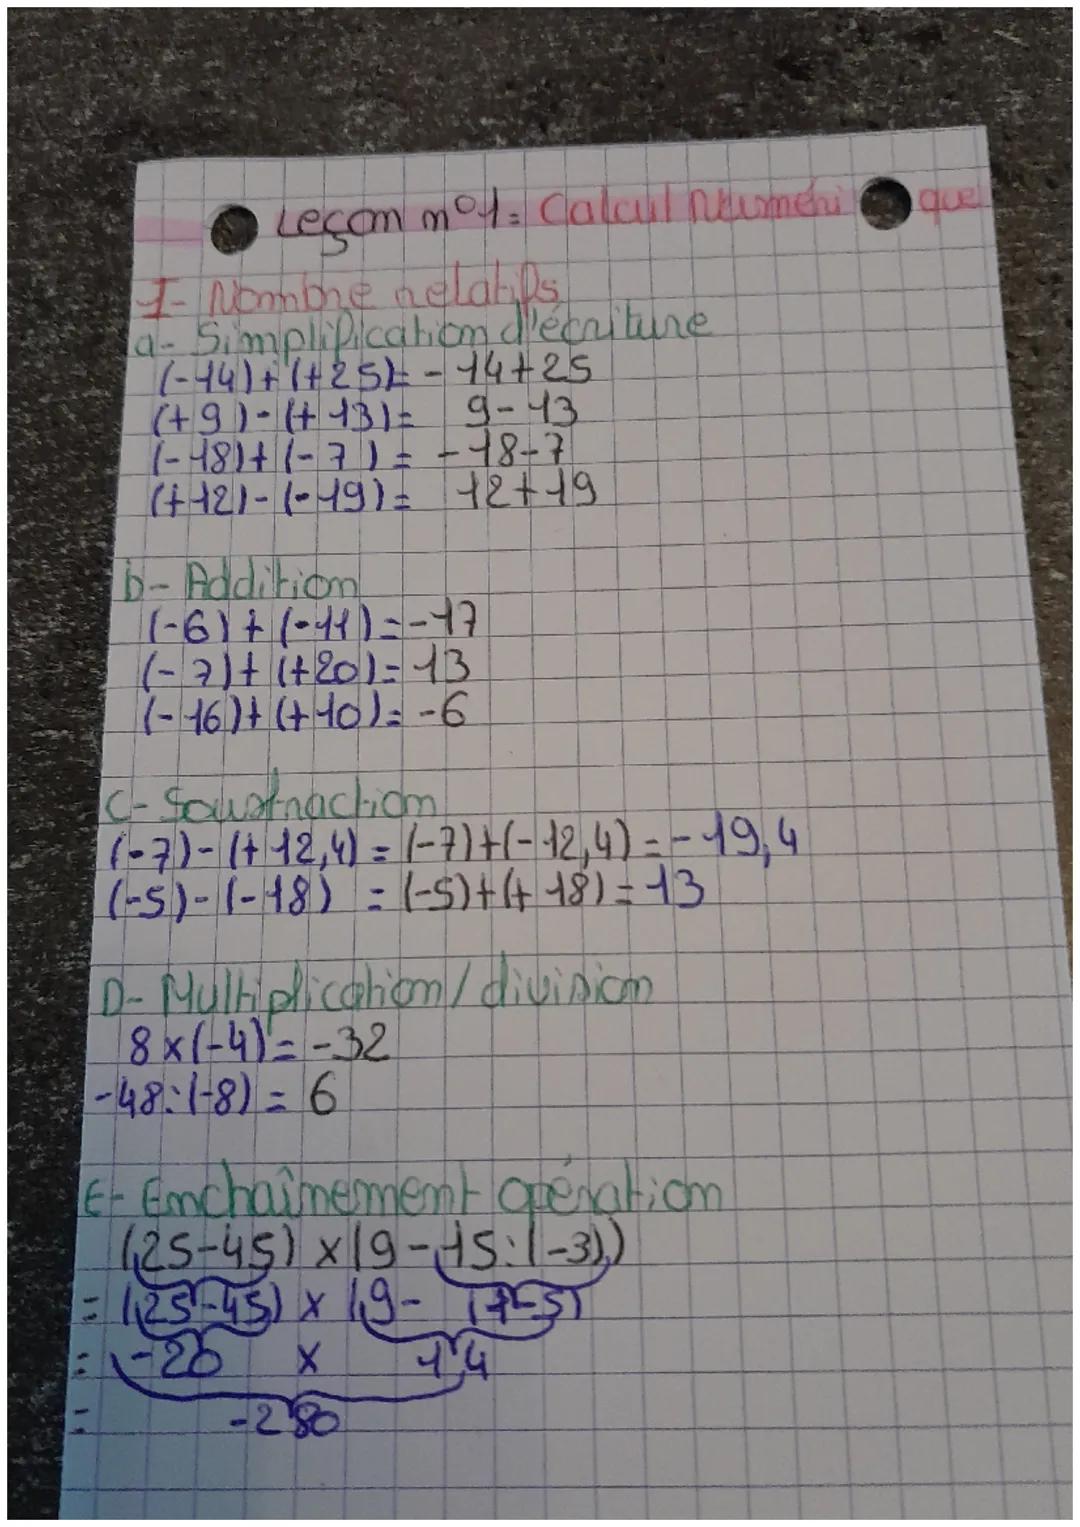 Leçon n°1: Calcul Numérique
I- Nombre relatifs
a- Simplification d'écriture
(-14)+(+25)= -14+25
(+9)-(+13)= 9-13
(-18)+(-7)= -18-7
(+12)-(-19)= 12+19
b- Addition
(-6)+(-11)=-17
(-7)+(+20)=13
(-16)+(+10)=-6
C- Soustraction
(-7)-(+12,4)=(-7)+(-12,4)=-19,4
(-5)-(-18) =(-5)+(+18)=13
D- Multiplication/division
8×(-4)=-32
-48:(-8)=6
E- Enchaînement opération
(25-45)×(9-15:(-3))
=(25-45)×(9- (-5)
= -20 × 14
= -280